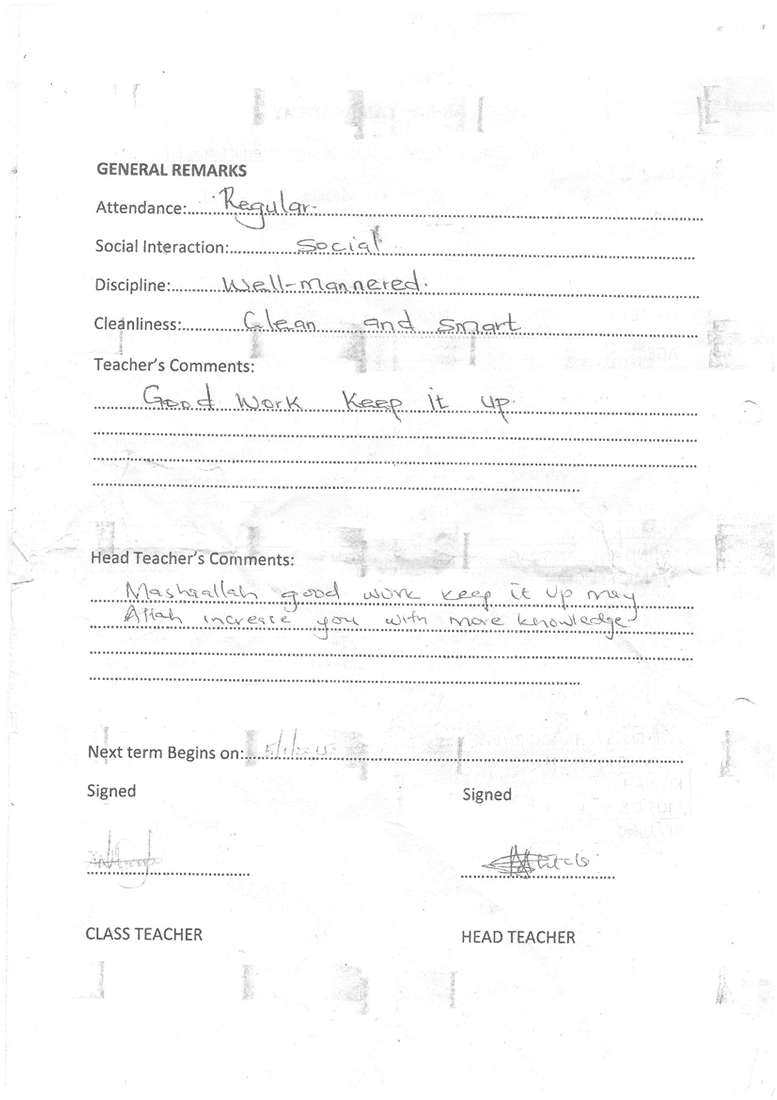 GENERAL REMARKS
Attendance: Regular.
Social Interaction: Social
Discipline: Well-mannered.
Cleanliness: Clean and smart
Teacher's Comments:
Good Work Keep it up.
Head Teacher's Comments:
Mashaallah good work keep it up may
Allah increase you with more knowledge
Next term Begins on:
Signed Signed
CLASS TEACHER HEAD TEACHER